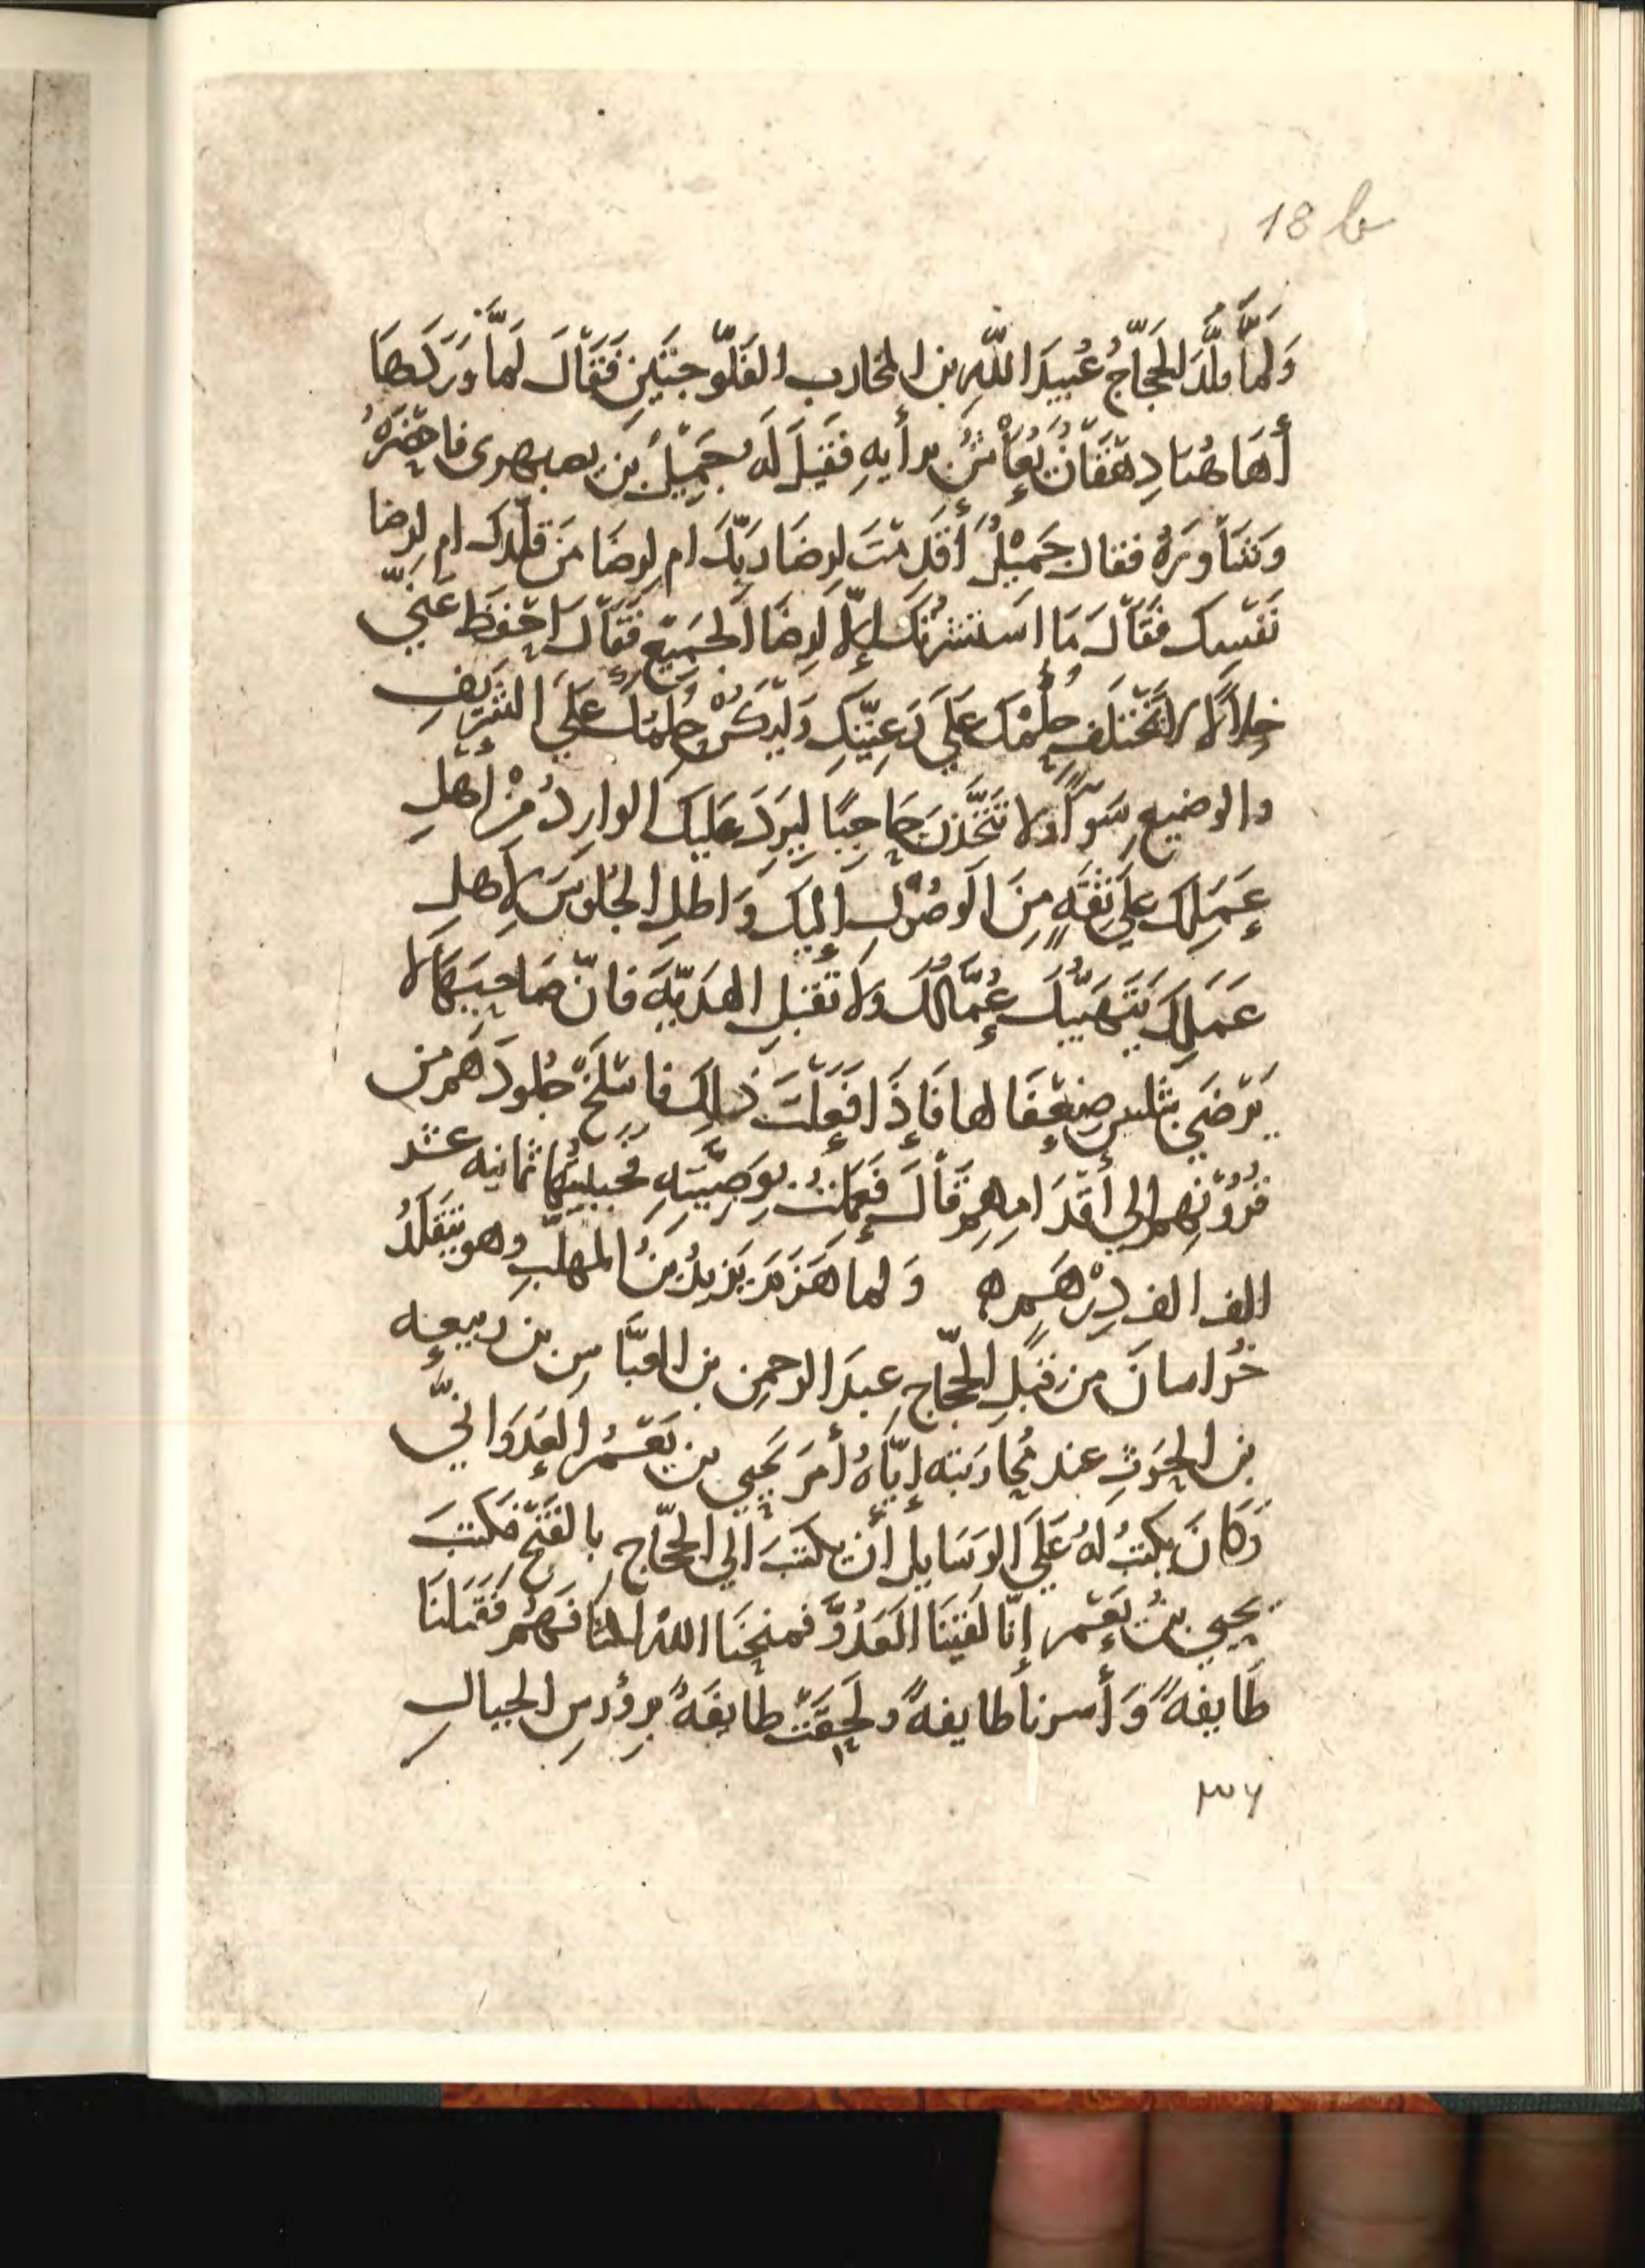 18 b
وَلَمَّا قلَّدَ الحَجَّاجُ عُبَيدَ اللّهِ بن المخارب الفَلّوجتَين فَقَالَ لَمَّا وَرَدَهَا
أَهَاهُنا دِهْقَانٌ يُعَاشُ برأيهِ فَقِيلَ لَهُ جَمِيلُ بن بصبهرى فاحضَرَهُ
وَشَاوَرَهُ فقال جَمِيْلُ أَقَدِمْتَ لِرِضَا رَبِّكَ ام لِرِضَا مَن قلّدك ام لِرِضا
نَفْسِك فَقَالَ مَا اسْتَشَرتُكَ إلاَّ لِرِضَا الجَمِيْعِ فَقَالَ احْفَظ عَنِّي
خِلالًا لا يَخْتَلِف حُكْمُكَ عَلَي رَعِيَّتِكِ وَليَكُنْ حُكمُكَ عَلَيَ الشَّرِيْفِ
والوضيعِ سَوَآءً ولا تتَّخَّذنَ حَاجِبًا لِيَرِدَ عَلَيك الوارِدُ مِنْ أَهْلِ
عَمَلِك علي ثقَةٍ مِنَ الوصُوْلِ إليك وَاطل الجُلوسَ لأَهلِ
عَمَلِكَ يَتَهَيَّبُكَ عُمَّالُكَ ولا تقبَلِ الهَدِيَّةَ فانّ صَاحِبَهَا لا
يَرْضَي بثلثين ضِعْفَا لها فَإِذَا فَعَلْتَ ذَلِكَ فاسْلَخْ جُلُودَهُم من
فرُوْنِهم الي أَقْدَامِهِم قَالَ فَعَمِلْتُ بوَصِيَّتِهِ فجبيتُهَا ثمانيه عشر
الف الف دِرْهَم ه وَلما هَزَمَ يَزِيدُ بنُ المهلّبِ وهو يتَقَلَّدُ
خُراسانَ من قِبَلِ الحَجّاجِ عبدَ الرحمن بن العَبَّاسِ بن ربيعه
بن الحَرثِ عند مُحَارَبَته إِيَّاهُ أَمَرَ يَحيي بن يَعْمُرَ العَدوَانيَّ
وَكَانَ يكتبُ لهُ عَلَيَ الرسَايل أَن يكتَبَ الي الحَجّاجِ بالفَتْحِ فكَتَبَ
يحيي بنُ يَعْمر إنّا لقينَا العَدُوَّ فمنحَنَا اللهُ اكتَافَهُم فَقَتَلنَا
طَايفَةً وَأَسرنا طايفهً ولَحِقَتْ طايفَةٌ برؤُوسِ الجبالِ
٣٦